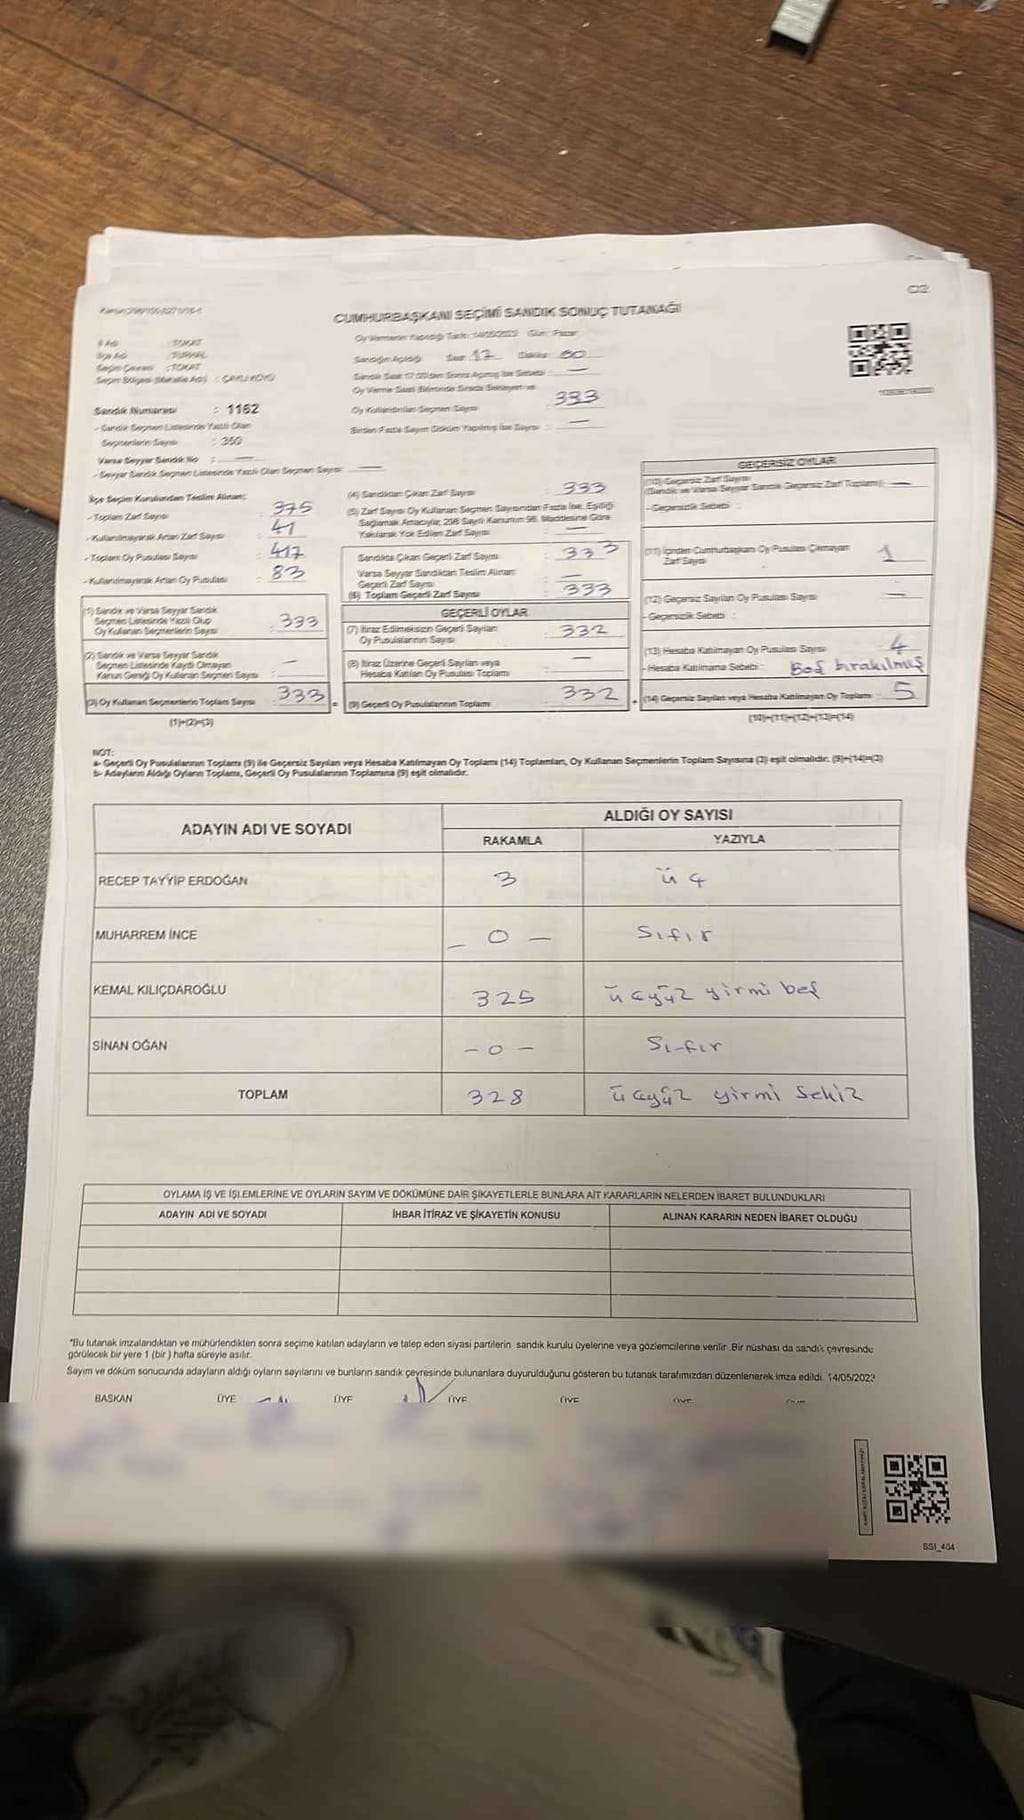 C12
CUMHURBAŞKANI SEÇİMİ SANDIK SONUÇ TUTANAĞI
İl Adı : TOKAT
İlçe Adı : TURHAL
Seçim Çevresi : TOKAT
Seçim Bölgesi (Mahalle Adı) : ÇAYLI KÖYÜ
Sandık Numarası : 1162
- Sandık Seçmen Listesinde Yazılı Olan
Seçmenlerin Sayısı : 350
Varsa Seyyar Sandık No : —
- Seyyar Sandık Seçmen Listesinde Yazılı Olan Seçmen Sayısı : —
Oy Vermenin Yapıldığı Tarih: 14/05/2023 Gün: Pazar
Sandığın Açıldığı Saat 17 Dakika: 00
Sandık Saat 17:00'den Sonra Açılmış İse Sebebi : —
Oy Verme Saati Bitiminde Sırada Bekleyen ve
Oy Kullandırılan Seçmen Sayısı 333
Birden Fazla Sayım Döküm Yapılmış İse Sayısı : —
İlçe Seçim Kurulundan Teslim Alınan;
- Toplam Zarf Sayısı : 375
- Kullanılmayarak Artan Zarf Sayısı : 41
- Toplam Oy Pusulası Sayısı : 417
- Kullanılmayarak Artan Oy Pusulası : 83
(1) Sandık ve Varsa Seyyar Sandık
Seçmen Listesinde Yazılı Olup
Oy Kullanan Seçmenlerin Sayısı : 333
(2) Sandık ve Varsa Seyyar Sandık
Seçmen Listesinde Kaydı Olmayan
Kanun Gereği Oy Kullanan Seçmen Sayısı : —
(3) Oy Kullanan Seçmenlerin Toplam Sayısı : 333
(1)+(2)=(3)
(4) Sandıktan Çıkan Zarf Sayısı : 333
(5) Zarf Sayısı Oy Kullanan Seçmen Sayısından Fazla İse, Eşitliği
Sağlamak Amacıyla; 298 Sayılı Kanunun 98. Maddesine Göre
Yakılarak Yok Edilen Zarf Sayısı : —
Sandıkta Çıkan Geçerli Zarf Sayısı : 333
Varsa Seyyar Sandıktan Teslim Alınan
Geçerli Zarf Sayısı : —
(6) Toplam Geçerli Zarf Sayısı : 333
GEÇERLİ OYLAR
(7) İtiraz Edilmeksizin Geçerli Sayılan
Oy Pusulalarının Sayısı : 332
(8) İtiraz Üzerine Geçerli Sayılan veya
Hesaba Katılan Oy Pusulası Toplamı : —
(9) Geçerli Oy Pusulalarının Toplamı : 332
GEÇERSİZ OYLAR
(10) Geçersiz Zarf Sayısı
(Sandık ve Varsa Seyyar Sandık Geçersiz Zarf Toplamı) : —
- Geçersizlik Sebebi :
(11) İçinden Cumhurbaşkanı Oy Pusulası Çıkmayan
Zarf Sayısı : 1
(12) Geçersiz Sayılan Oy Pusulası Sayısı : —
- Geçersizlik Sebebi :
(13) Hesaba Katılmayan Oy Pusulası Sayısı : 4
- Hesaba Katılmama Sebebi : Boş bırakılmış
(14) Geçersiz Sayılan veya Hesaba Katılmayan Oy Toplamı : 5
(10)+(11)+(12)+(13)=(14)
NOT:
a- Geçerli Oy Pusulalarının Toplamı (9) ile Geçersiz Sayılan veya Hesaba Katılmayan Oy Toplamı (14) Toplamları, Oy Kullanan Seçmenlerin Toplam Sayısına (3) eşit olmalıdır. (9)+(14)=(3)
b- Adayların Aldığı Oyların Toplamı, Geçerli Oy Pusulalarının Toplamına (9) eşit olmalıdır.
ADAYIN ADI VE SOYADI
ALDIĞI OY SAYISI
RAKAMLA YAZIYLA
RECEP TAYYİP ERDOĞAN 3 üç
MUHARREM İNCE — 0 — Sıfır
KEMAL KILIÇDAROĞLU 325 üçyüz yirmi beş
SİNAN OĞAN — 0 — Sıfır
TOPLAM 328 üçyüz yirmi sekiz
OYLAMA İŞ VE İŞLEMLERİNE VE OYLARIN SAYIM VE DÖKÜMÜNE DAİR ŞİKAYETLERLE BUNLARA AİT KARARLARIN NELERDEN İBARET BULUNDUKLARI
ADAYIN ADI VE SOYADI İHBAR İTİRAZ VE ŞİKAYETİN KONUSU ALINAN KARARIN NEDEN İBARET OLDUĞU
"Bu tutanak imzalandıktan ve mühürlendikten sonra seçime katılan adayların ve talep eden siyasi partilerin sandık kurulu üyelerine veya gözlemcilerine verilir. Bir nüshası da sandık çevresinde
görülecek bir yere 1 (bir) hafta süreyle asılır.
Sayım ve döküm sonucunda adayların aldığı oyların sayılarını ve bunların sandık çevresinde bulunanlara duyurulduğunu gösteren bu tutanak tarafımızdan düzenlenerek imza edildi. 14/05/2023
BAŞKAN ÜYE ÜYE ÜYE ÜYE ÜYE
SSI_404